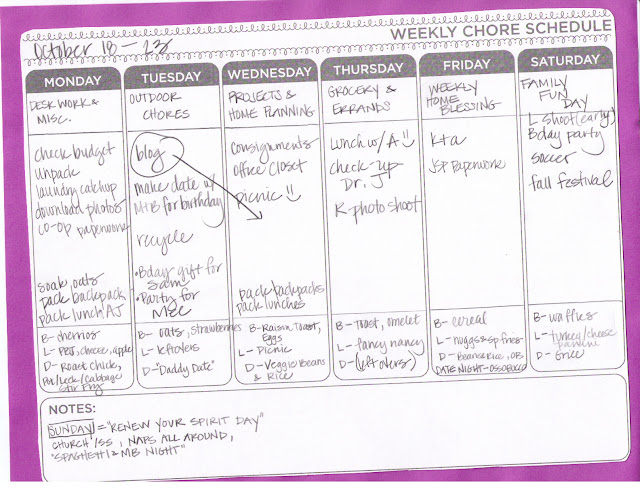 WEEKLY CHORE SCHEDULE
October 18 - 23
MONDAY
DESK WORK &
MISC.
check budget
unpack
laundry catchup
download photos
co-op paperwork
soak oats
pack backpack
pack lunch AJ
B- cherrios
L- PB&J, cheese, apple
D- Roast Chick,
Pot/Leek/Cabbage
Stir Fry
TUESDAY
OUTDOOR
CHORES
blog
make date w/
M+B for birthday
recycle
• Bday gift for
Sam
• Panty for
B- oats, strawberries
L- leftovers
D- "Daddy Date"
WEDNESDAY
PROJECTS &
HOME PLANNING
consignments
office closet
picnic
pack backpacks
pack lunches
B- Raisin Toast,
Eggs
L- Picnic
D- Veggie/Beans
& Rice
THURSDAY
GROCERY &
ERRANDS
Lunch w/ A
check-up
Dr. J
K-photo shoot
B- Toast, omelet
L- fancy nancy
D- (leftovers)
FRIDAY
WEEKLY
HOME
BLESSING
K+A
JSP Paperwork
B- cereal
L- nuggs & sp fries
D- Beans & Rice, OB
DATE NIGHT - OSSOBUCCO
SATURDAY
FAMILY
FUN
DAY
L shoot (early)
Bday party
soccer
fall festival
B- waffles
L- turkey/cheese
panini
D- Grice
NOTES:
SUNDAY = "RENEW YOUR SPIRIT DAY"
CHURCH / SS, NAPS ALL AROUND,
"SPAGHETTI & MB NIGHT"